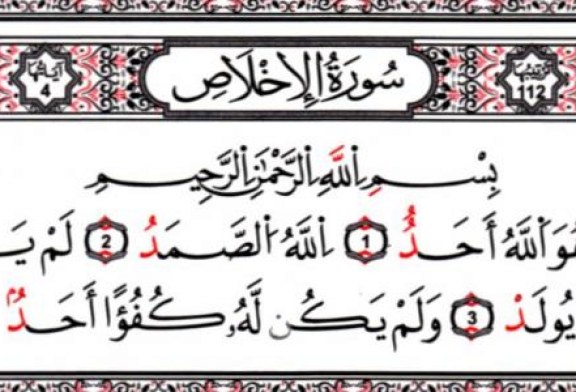 ترتيبها 112 سُورَةُ الإِخْلَاصِ آياتها 4
بِسْمِ اللَّهِ الرَّحْمَٰنِ الرَّحِيمِ
هُوَ اللَّهُ أَحَدٌ 1 اللَّهُ الصَّمَدُ 2 لَمْ يَـ
يُولَدْ 3 وَلَمْ يَكُن لَّهُ كُفُؤًا أَحَدٌ